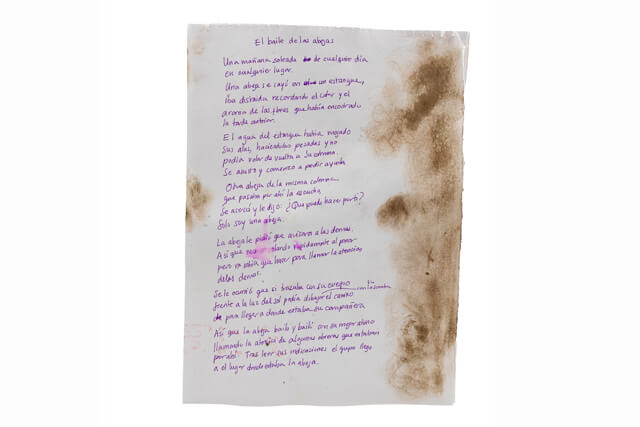 El baile de las abejas
Una mañana soleada de cualquier día
en cualquier lugar.
Una abeja se cayó en un estanque,
iba distraída recordando el color y el
aroma de las flores que había encontrado
la tarde anterior.
El agua del estanque había mojado
sus alas, haciéndolas pesadas y no
podía volar de vuelta a su colmena.
Se asustó y comenzó a pedir ayuda
Otra abeja de la misma colmena
que pasaba por ahí la escuchó,
Se acercó y le dijo: ¿Qué puedo hacer por ti?
Solo soy una abeja.
La abeja le pidió que avisara a las demás.
Así que rápidamente al panal
pero no sabía que hacer para llamar la atención
de las demás.
Se le ocurrió que si bailaba con su cuerpo
frente a la luz del sol podía dibujar el camino
para llegar a donde estaba su compañera
Así que la abeja bailó y bailó con su mejor ritmo
llamando la atención de algunas obreras que estaban
por ahí. Tras leer sus indicaciones el grupo llego
a el lugar donde estaba la abeja.